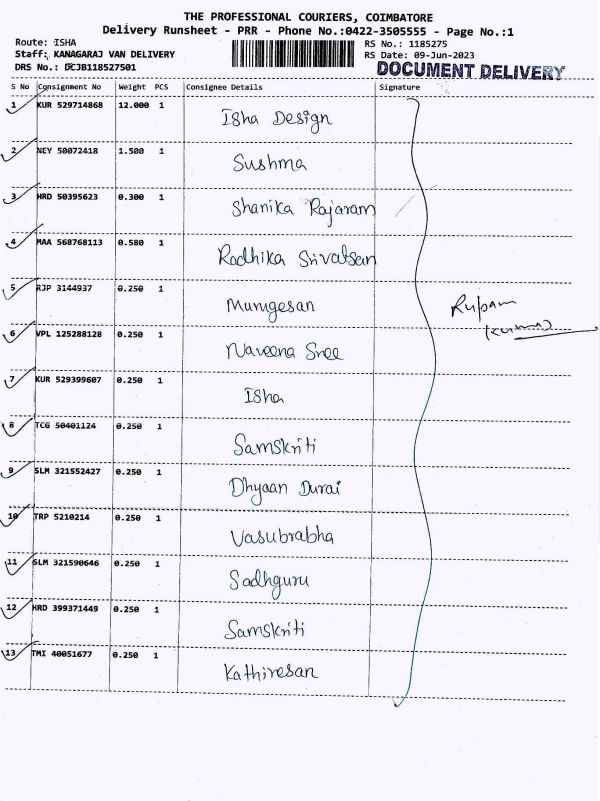 THE PROFESSIONAL COURIERS, COIMBATORE
Delivery Runsheet - PRR - Phone No.:0422-3505555 - Page No.:1
Route: ISHA
RS No.: 1185275
Staff: KANAGARAJ VAN DELIVERY
RS Date: 09-Jun-2023
DRS No.: DCJB118527501
DOCUMENT DELIVERY
S No Consignment No Weight PCS Consignee Details Signature
1 KUR 529714868 12.000 1 Isha Design
2 NEY 50072418 1.500 1 Sushma
3 HRD 50395623 0.300 1 Shanika Rajaram
4 MAA 568768113 0.580 1 Radhika Srivatsan
5 RJP 3144937 0.250 1 Murugesan
6 VPL 125288128 0.250 1 Naveena Sree
7 KUR 529399607 0.250 1 Isha
8 TCG 50401124 0.250 1 Samskriti
9 SLM 321552427 0.250 1 Dhyaan Durai
10 TRP 5210214 0.250 1 Vasubrabha
11 SLM 321590646 0.250 1 Sadhguru
12 HRD 399371449 0.250 1 Samskriti
13 TMI 40051677 0.250 1 Kathiresan
Rupam